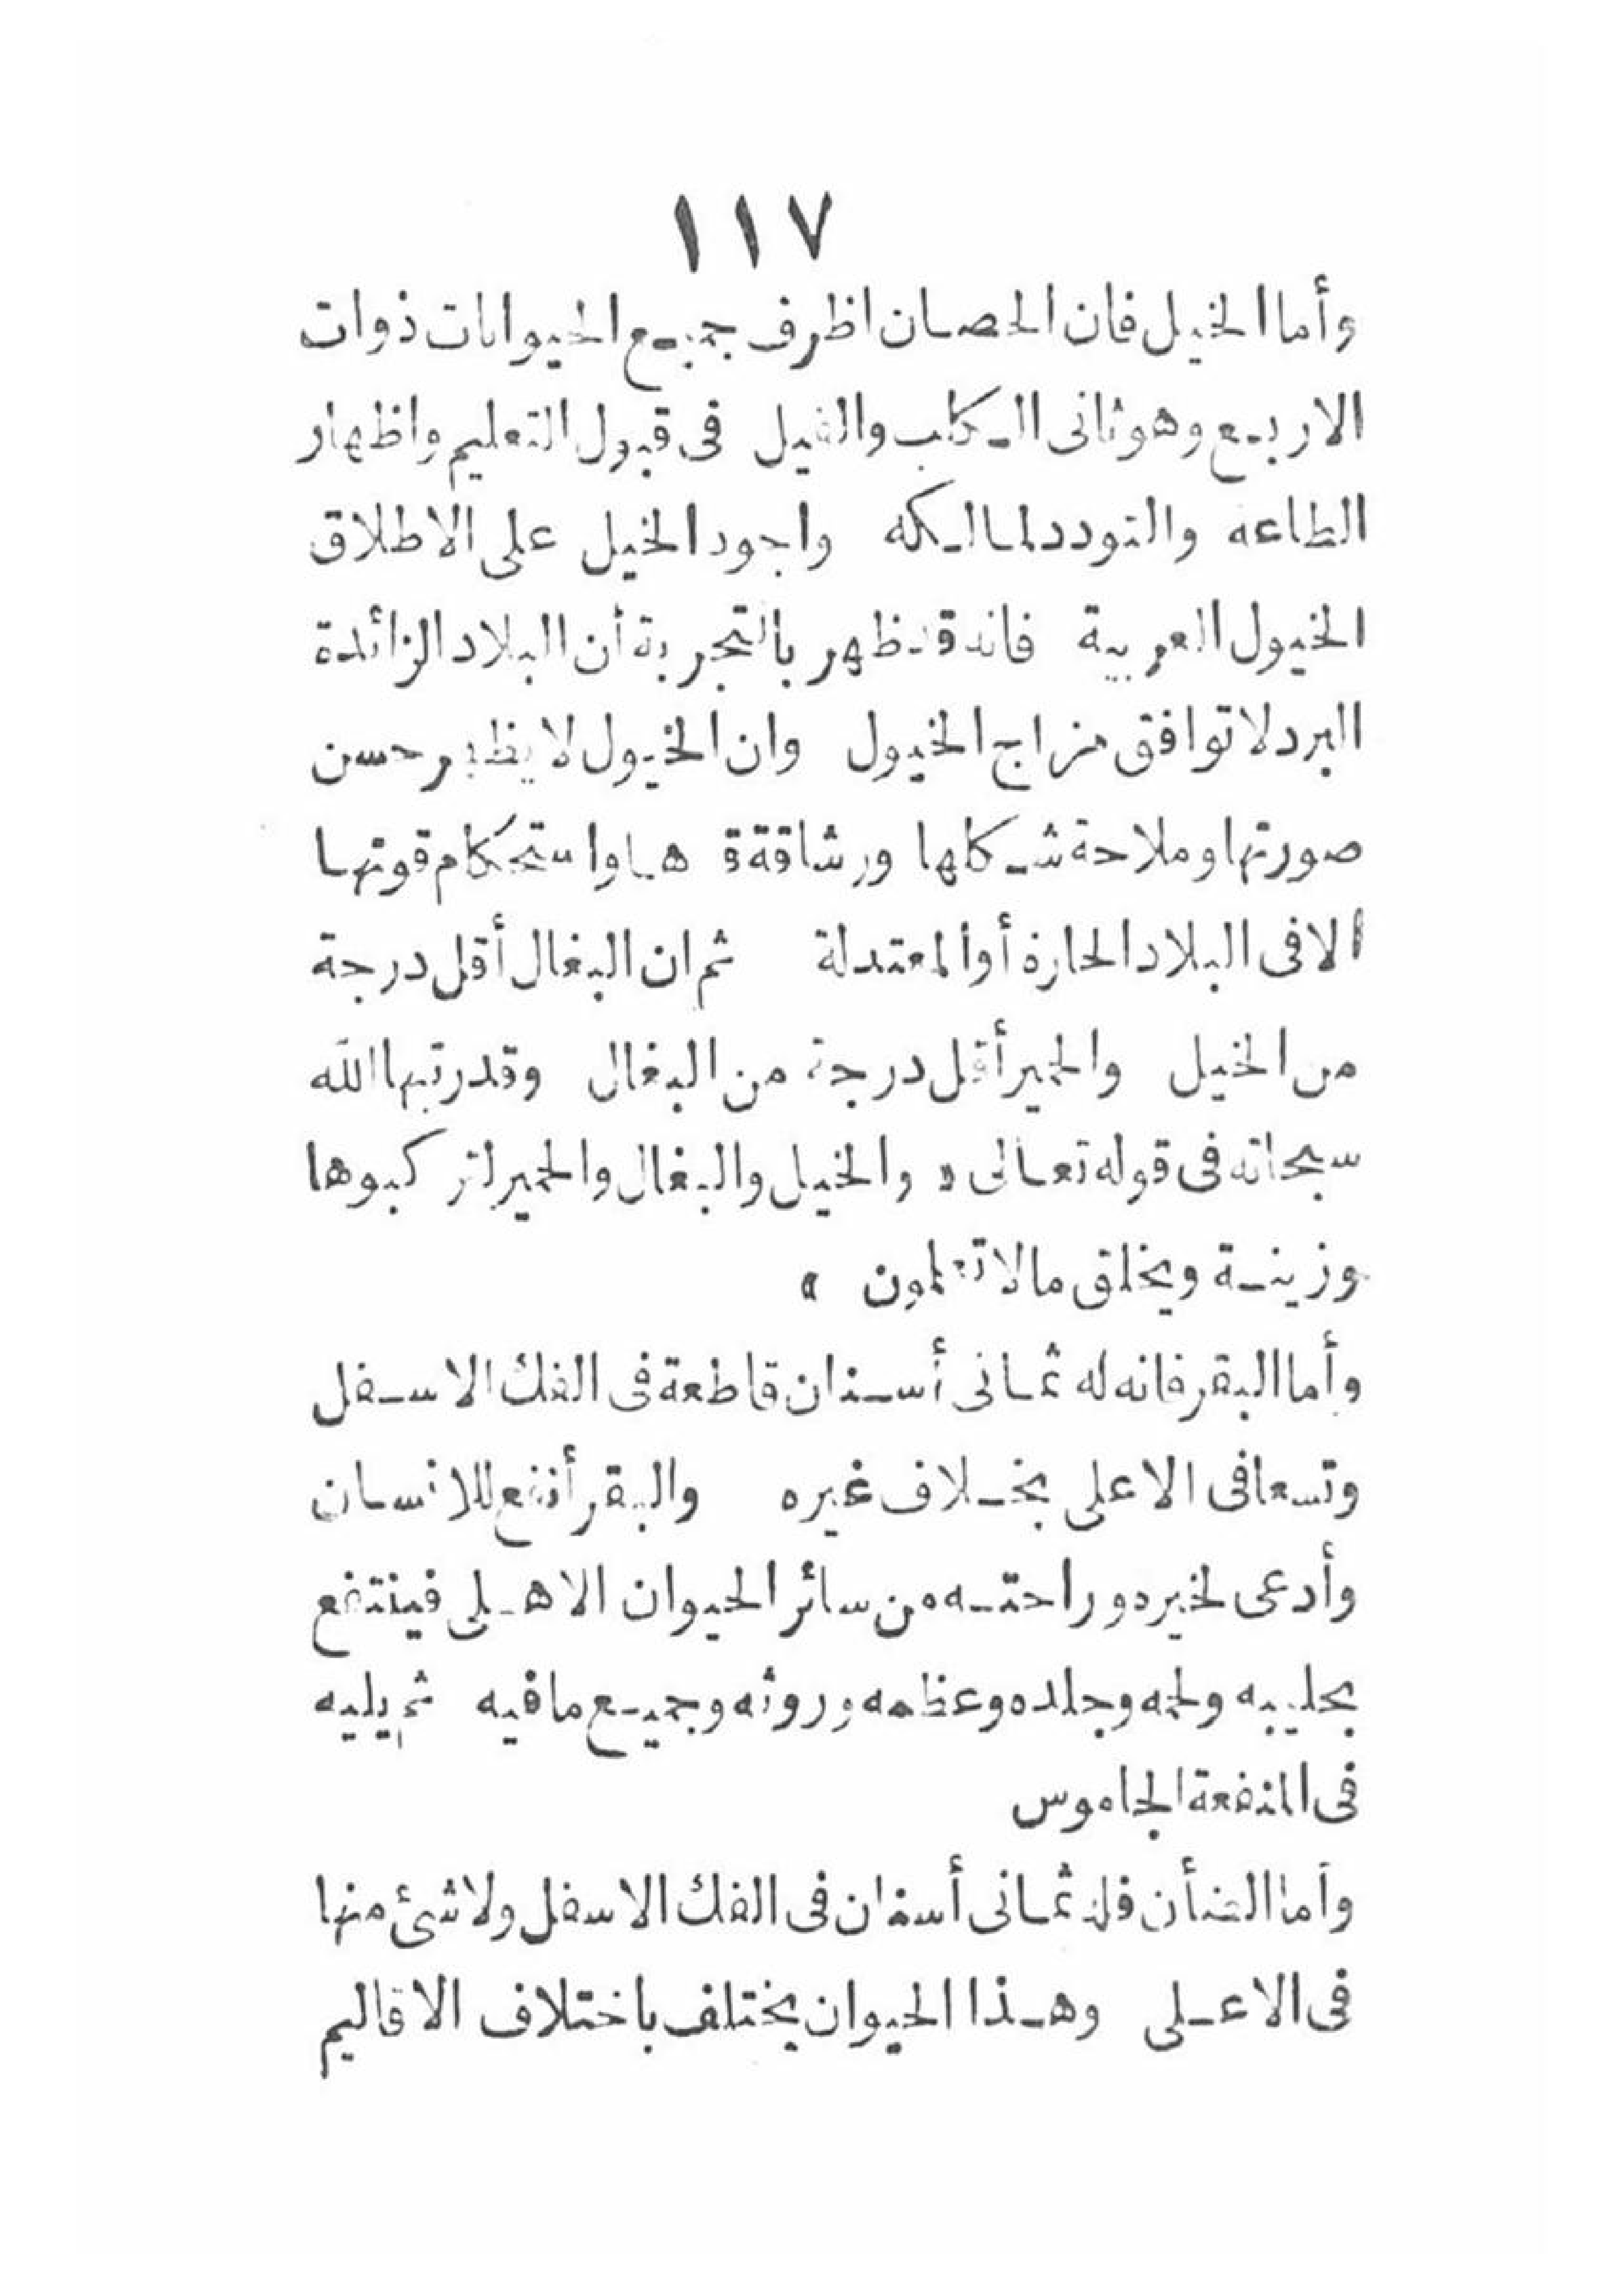 ١١٧
وأما الخيل فان الحصان اظرف جميع الحيوانات ذوات
الاربع وهو ثانى الكلب والفيل فى قبول التعليم واظهار
الطاعة والتودد لمالكه واجود الخيل على الاطلاق
الخيول العربية فانه قد ظهر بالتجربة أن البلاد الزائدة
البرد لا توافق مزاج الخيول وان الخيول لا يظهر حسن
صورتها وملاحة شكلها ورشاقة قدها واستحكام قوتها
الا فى البلاد الحارة أو المعتدلة ثم ان البغال أقل درجة
من الخيل والحمير أقل درجة من البغال وقد رتبها الله
سبحانه فى قوله تعالى « والخيل والبغال والحمير لتركبوها
وزينة ويخلق ما لا تعلمون »
وأما البقر فانه له ثمانى أسنان قاطعة فى الفك الاسفل
وتسعا فى الاعلى بخلاف غيره والبقر أنفع للانسان
وأدعى لخيره وراحته من سائر الحيوان الاهلى فينتفع
بحليبه ولحمه وجلده وعظمه وروثه وجميع ما فيه ثم يليه
فى المنفعة الجاموس
وأما الضأن فله ثمانى أسنان فى الفك الاسفل ولا شئ منها
فى الاعلى وهذا الحيوان يختلف باختلاف الاقاليم